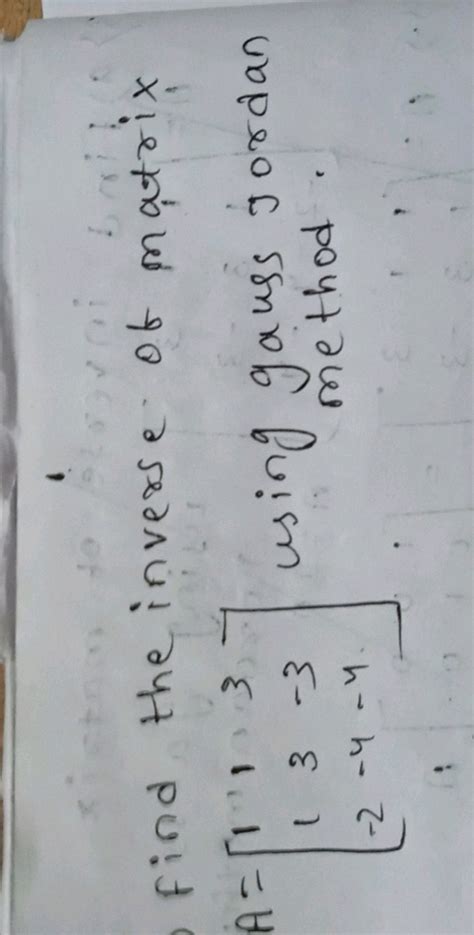 find the inverse of matrix
A = [1 1 3 using gauss jordan
1 3 -3 method.
-2 -4 -4]